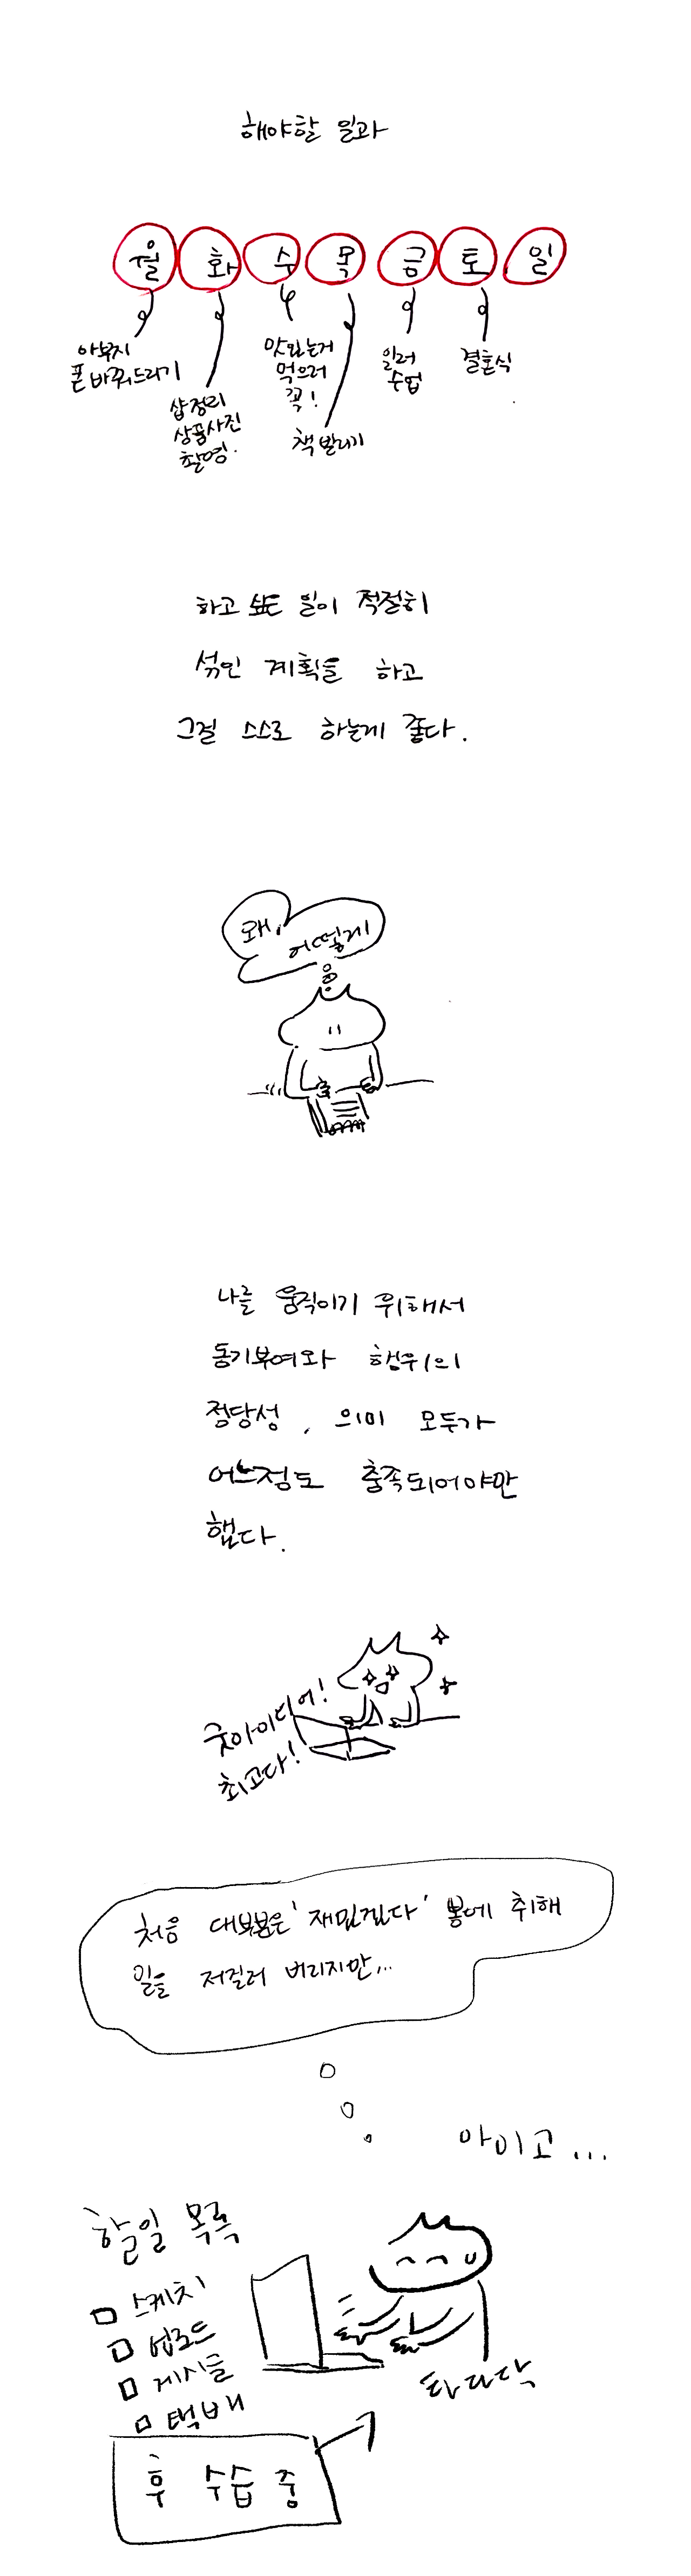 해야할 일과
월 화 수 목 금 토 일
아부지
폰 바꿔드리기
샵정리
상품사진
촬영.
맛있는거
먹으러
꼭!
책 빌리기
일러
수업
결혼식
하고 싶은 일이 적절히
섞인 계획을 하고
그걸 스스로 하는게 좋다.
왜,
어떻게
나를 움직이기 위해서
동기부여와 행위의
정당성, 의미 모두가
어느정도 충족되어야만
했다.
굿아이디어!
최고다!
처음 대부분은 '재밌겠다' 뽕에 취해
일을 저질러 버리지만...
아이고...
할일 목록
스케치
업로드
게시글
택배
타다닥
후 수습 중